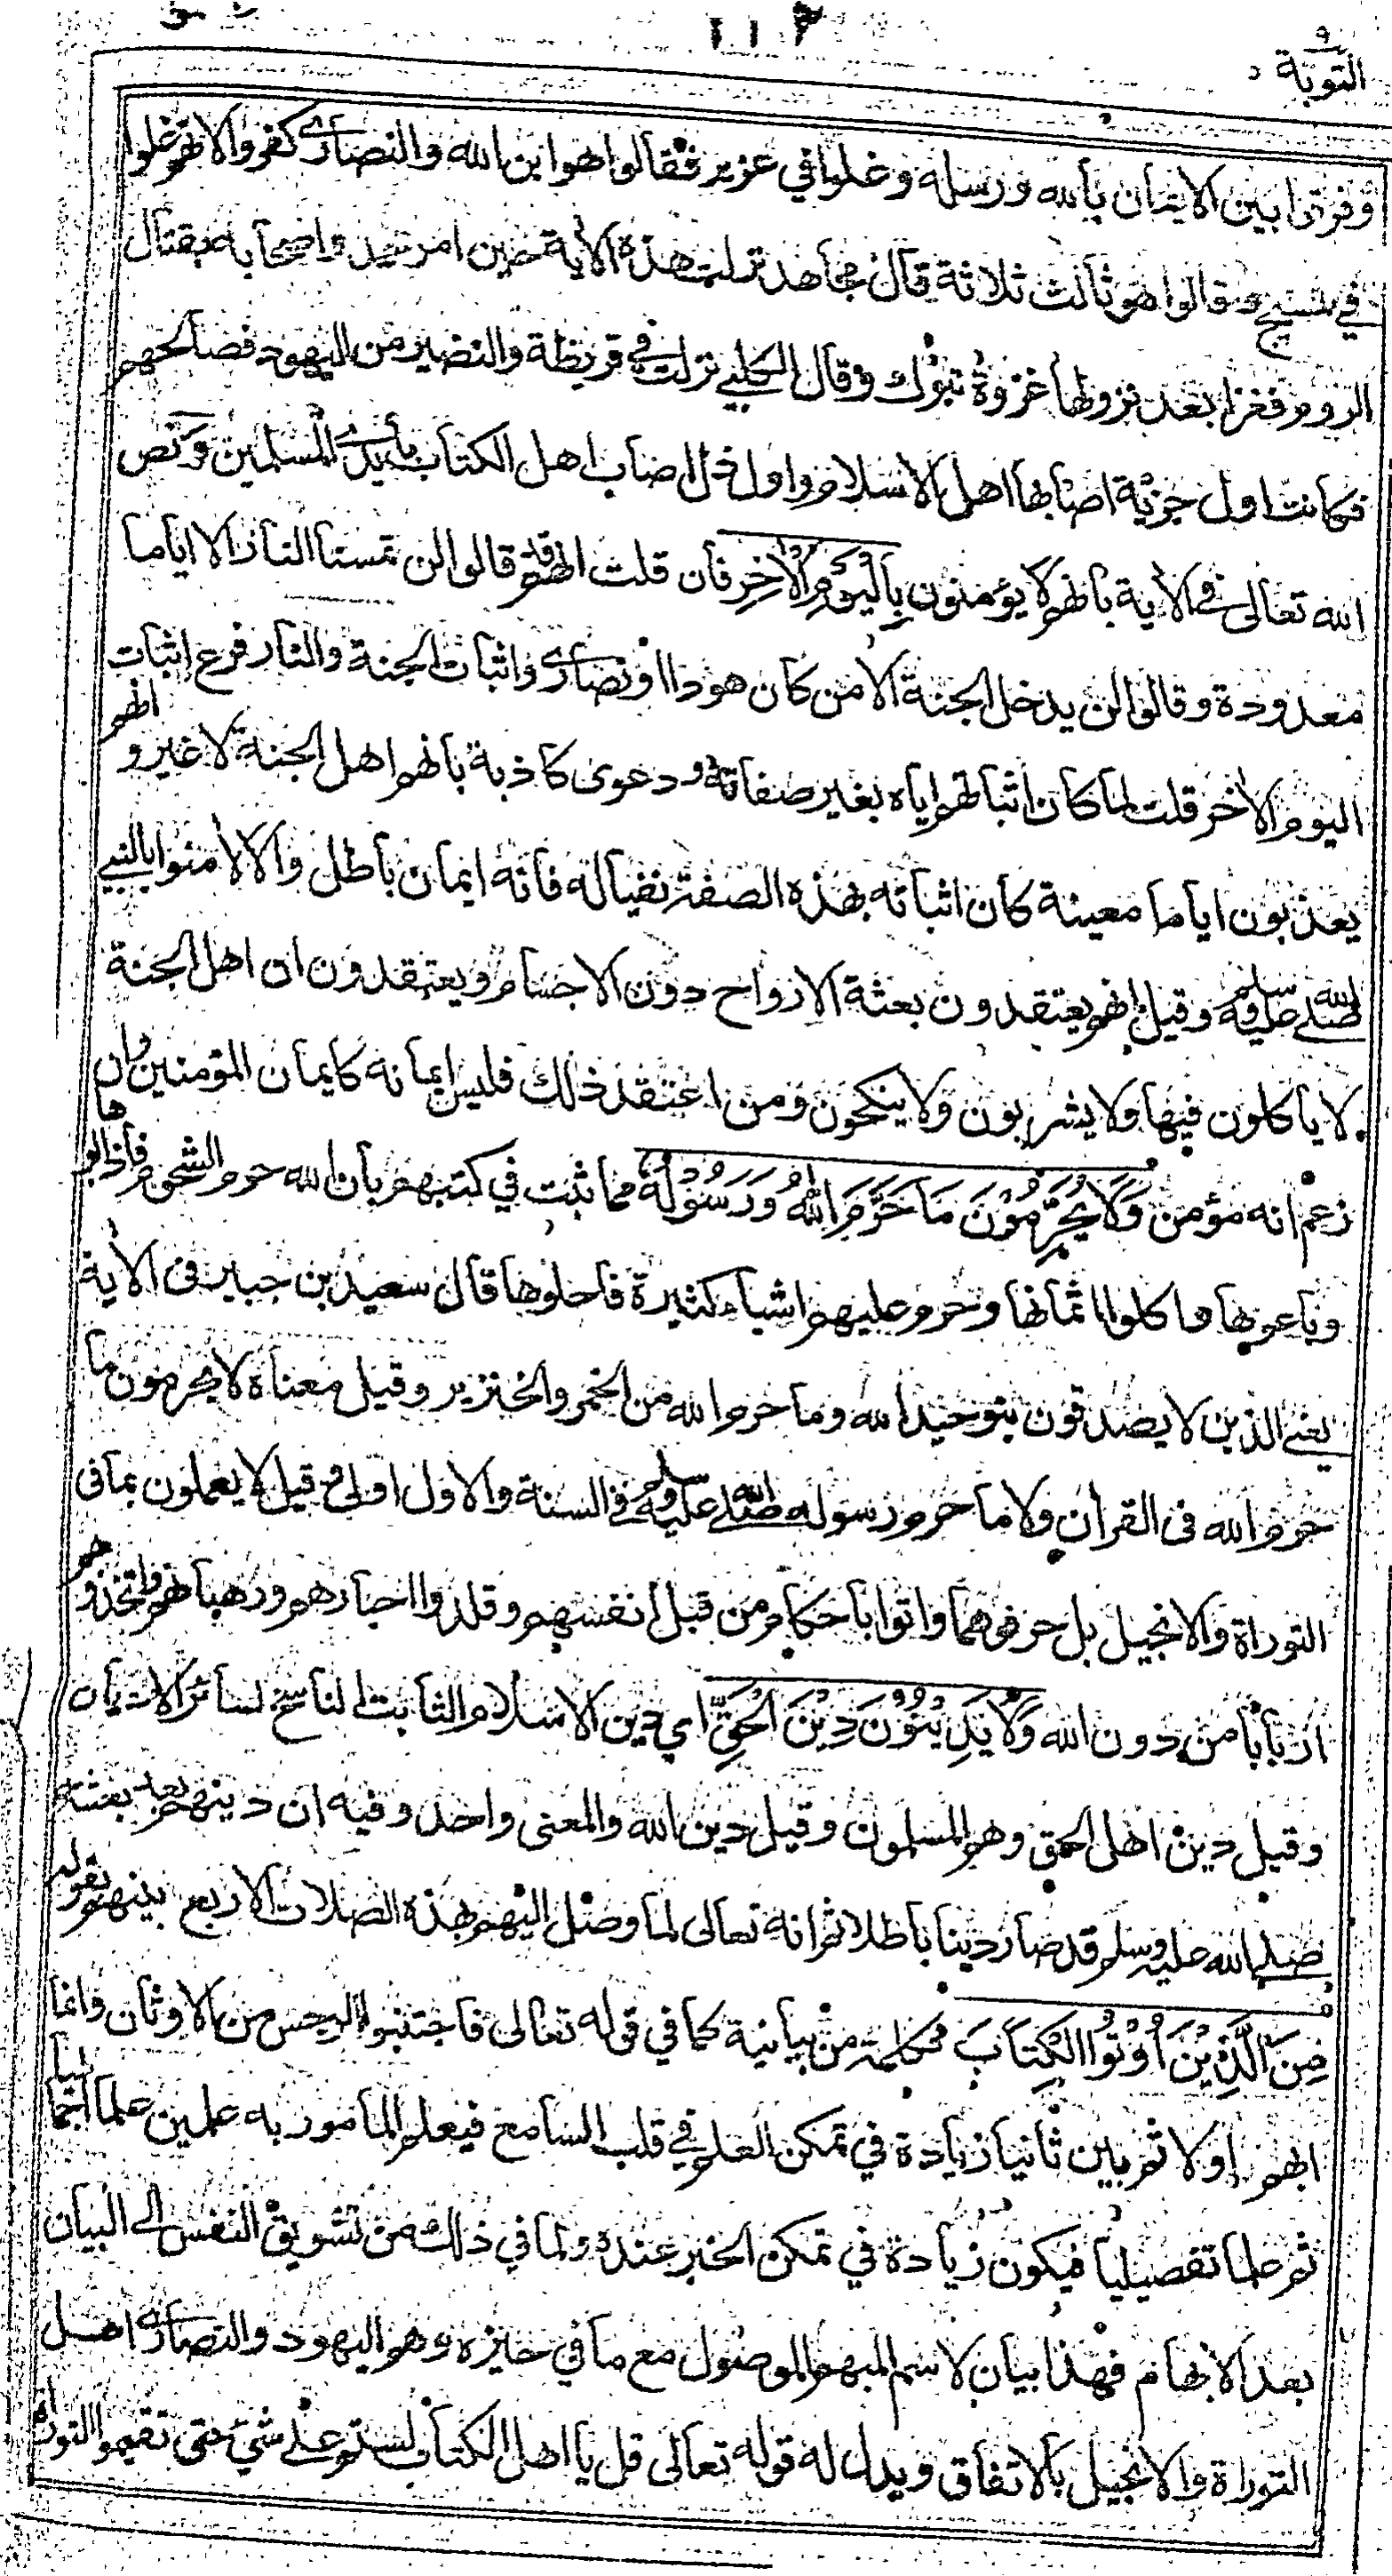 التوبة ٩
وفرقوا بين الايمان بالله ورسله وغلوا في عزير فقالوا هو ابن الله والنصارى كفروا لانهم غلوا
في المسيح وقالوا هو ثالث ثلاثة قال مجاهد نزلت هذه الآية حين امر محمد واصحابه بقتال
الروم فغزا بعد نزولها غزوة تبوك وقال الكلبي نزلت في قريظة والنضير من اليهود فصالحهم
فكانت اول جزية اصابها اهل الاسلام واول ذل اصاب اهل الكتاب بأيدى المسلمين ونص
الله تعالى في الآية بانهم لا يؤمنون بِالْيَوْمِ الْآخِرِ فان قلت انهم قد قالوا لن تمسنا النار الا اياما
معدودة وقالوا لن يدخل الجنة الا من كان هودا او نصارى واثبات الجنة والنار فرع اثبات
اليوم الآخر قلت لما كان اثباتهم اياه بغير صفاته ودعوى كاذبة بانهم اهل الجنة لا غير وانهم
يعذبون اياما معينة كان اثباته بهذه الصفة نفيا له فانه ايمان باطل والا لآمنوا بالنبي
صلى الله عليه وسلم وقيل انهم يعتقدون بعثة الارواح دون الاجسام ويعتقدون ان اهل الجنة
لا يأكلون فيها ولا يشربون ولا ينكحون ومن اعتقد ذلك فليس ايمانه كايمان المؤمنين وان
زعم انه مؤمن وَلَا يُحَرِّمُوْنَ مَا حَرَّمَ اللهُ وَرَسُوْلُهُ مما ثبت في كتبهم بان الله حرم الشحوم فاذابوها
وباعوها واكلوا اثمانها وحرم عليهم اشياء كثيرة فاحلوها قال سعيد بن جبير فى الآية
يعنى الذين لا يصدقون بتوحيد الله وما حرم الله من الخمر والخنزير وقيل معناه لا يحرمون ما
حرم الله فى القرآن ولا ما حرم رسوله صلى الله عليه وسلم في السنة والاول اولى وقيل لا يعملون بما فى
التوراة والانجيل بل حرفوهما واتوا باحكام من قبل انفسهم وقلدوا احبارهم ورهبانهم واتخذوهم
اربابا من دون الله وَلَا يَدِيْنُوْنَ دِيْنَ الْحَقِّ اي دين الاسلام الثابت الناسخ لسائر الاديان
وقيل دين اهل الحق وهم المسلمون وقيل دين الله والمعنى واحد وفيه ان دينهم بعد بعثته
صلى الله عليه وسلم قد صار دينا باطلا ثم انه تعالى لما وصل اليهم بهذه الصلات الاربع بينهم بقوله
مِنَ الَّذِيْنَ اُوْتُوا الْكِتَابَ فكلمة من بيانية كما في قوله تعالى فاجتنبوا الرجس من الاوثان وانما
ابهم اولا ثم بين ثانيا زيادة في تمكن العلم في قلب السامع فيعلم المأمور به علمين علما اجماليا
ثم علما تفصيليا فيكون زيادة في تمكن الخبر عنده ولما في ذلك من تشويق النفس الى البيان
بعد الابهام فهذا بيان لاسم المبهم الموصول مع ما في حيزه وهو اليهود والنصارى اهل
التوراة والانجيل بالاتفاق ويدل له قوله تعالى قل يا اهل الكتاب لستم على شيء حتى تقيموا التوراة